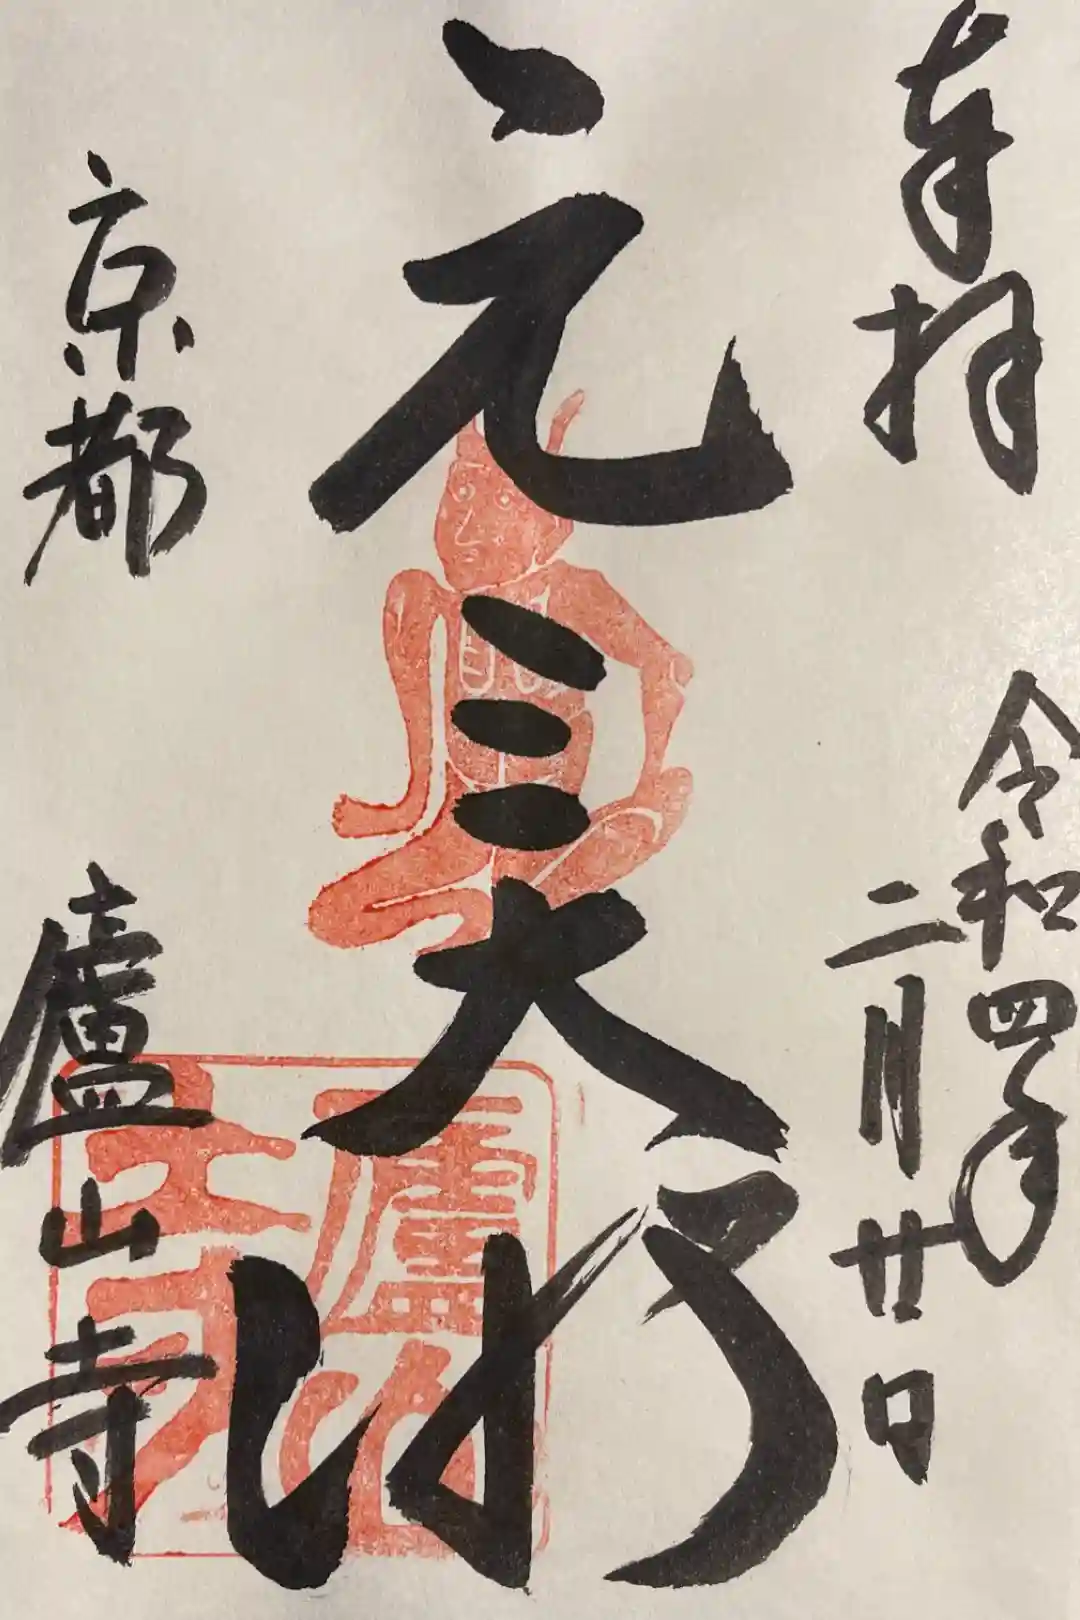 奉拝
令和四年
二月廿日
元三大師
京都
廬山寺
廬山寺